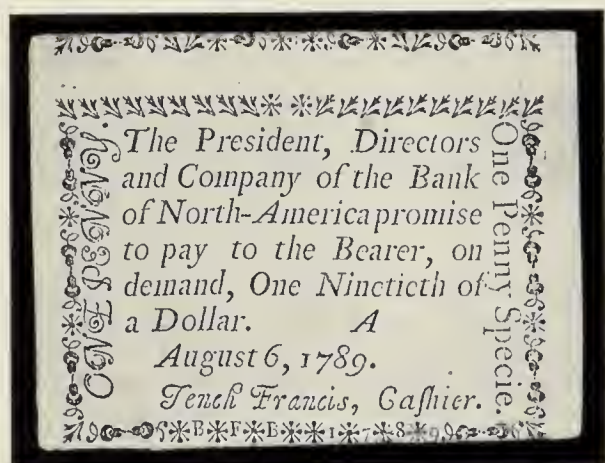 ONE PENNY.
The President, Directors
and Company of the Bank
of North-America promise
to pay to the Bearer, on
demand, One Ninetieth of
a Dollar. A
August 6, 1789.
Tench Francis, Caſhier.
One Penny Specie.
B F B 1 7 8 9